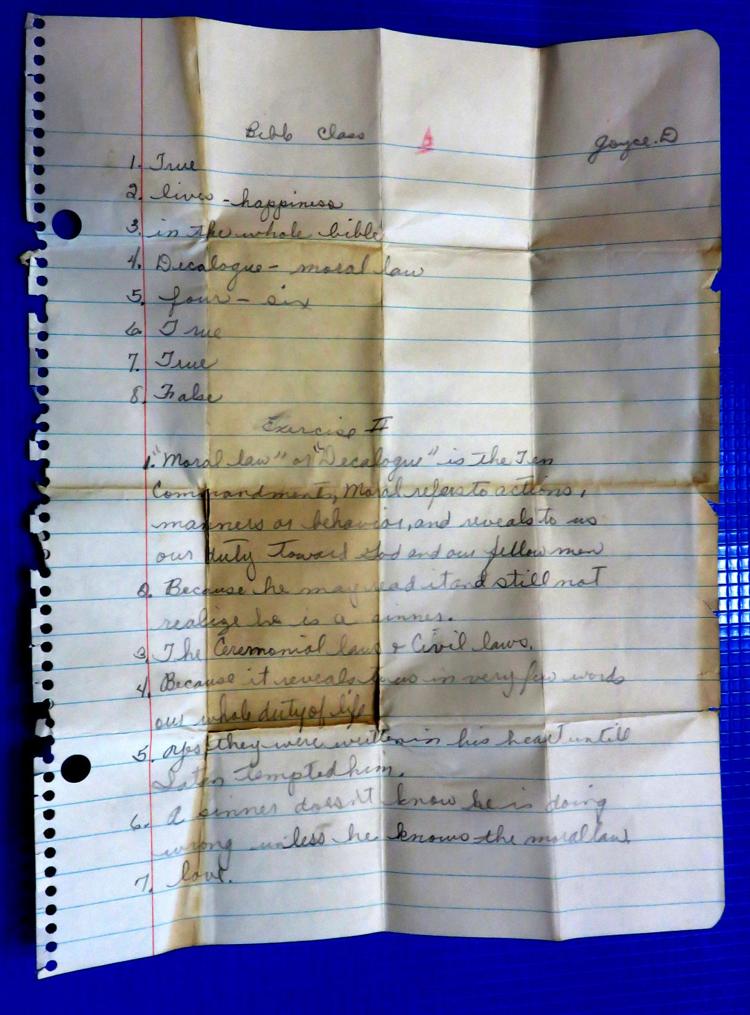 Bible Class Joyce.D
1. True
2. lives - happiness
3. in the whole bible
4. Decalogue - moral law
5. four - six
6. True
7. True
8. False
Exercise II
1. "Moral law" or "Decalogue" is the Ten
Commandments, Moral refers to actions,
manners or behavior, and reveals to us
our duty toward God and our fellow men
2. Because he may read it and still not
realize he is a sinner.
3. The Ceremonial laws & Civil laws.
4. Because it reveals to us in very few words
our whole duty of life
5. they were written in his heart until
Satan tempted him.
6. A sinner doesn't know he is doing
wrong unless he knows the moral law.
7. love.